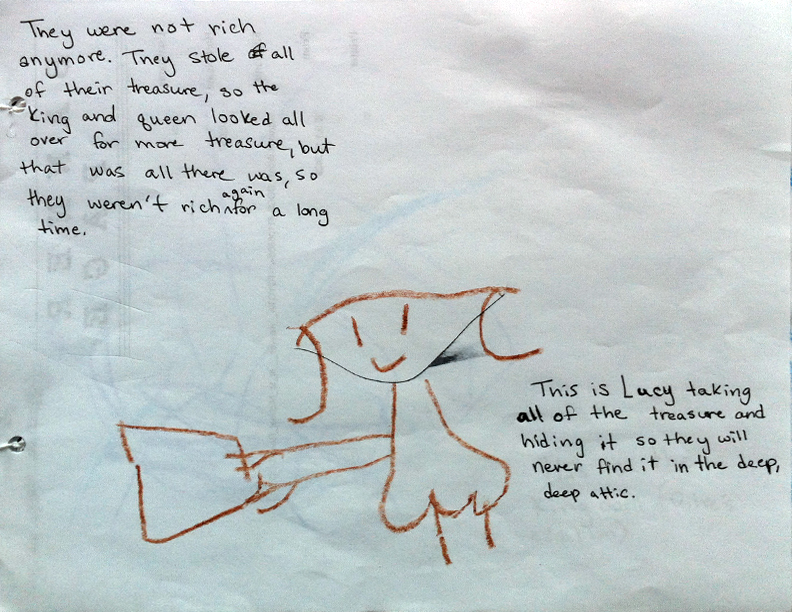 They were not rich
anymore. They stole all
of their treasure, so the
King and queen looked all
over for more treasure, but
that was all there was, so
they weren't rich again for a long
time.
This is Lucy taking
all of the treasure and
hiding it so they will
never find it in the deep,
deep attic.